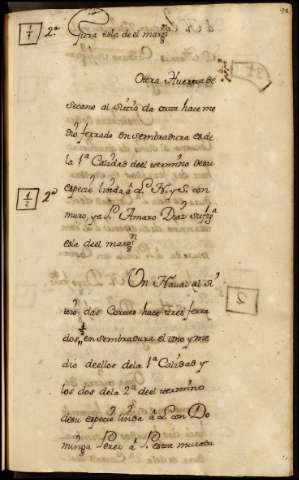 gura es la de el marg.n
Otra Huerta de
secano al sitio da cutra hace me
dio ferrado en sembradura es de
la 1.a Calidad del termino de su
especie linda à L. N. y S. con
muro, y a P. Amaro Diaz su fig.a
es la de el marg.n
Un Nabal al Si
tio das Cortes hace tres ferra
dos 1/2 en sembradura el uno y me
dio de ellos de la 1.a Calidad y
los dos de la 2.a de el termino
de su especie linda à L. con Do
minga Perez à P.